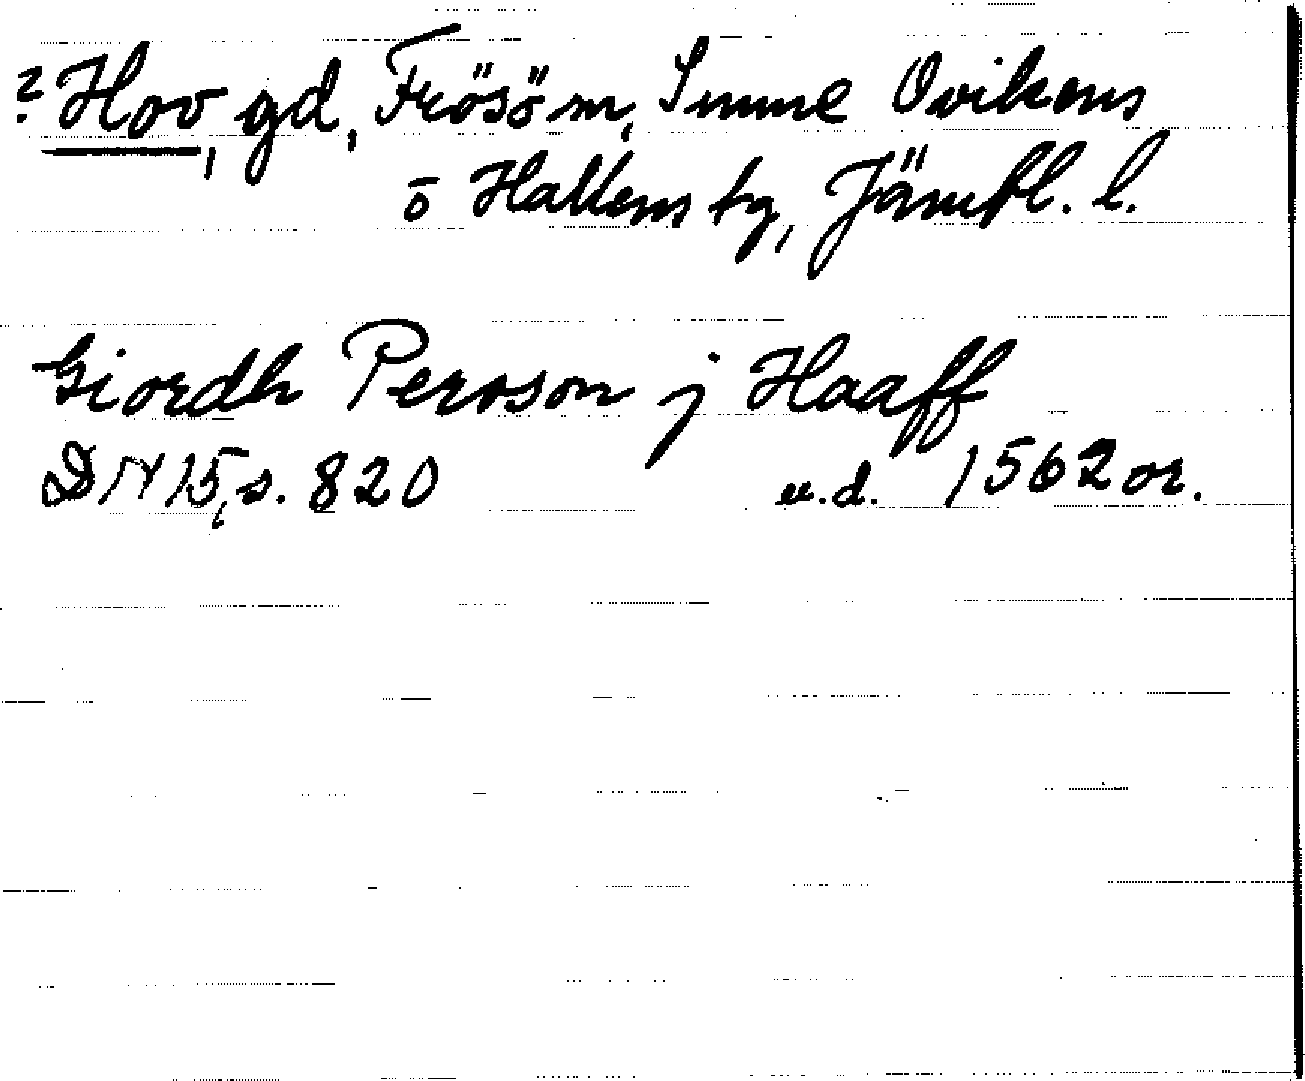 ? Hov, gd, Frösö sn, Sunne Ovikens
o Hallens tg, Jämtl. l.
Giordh Persson j Haaff
DN 15, s. 820 u.d. 1562 or.